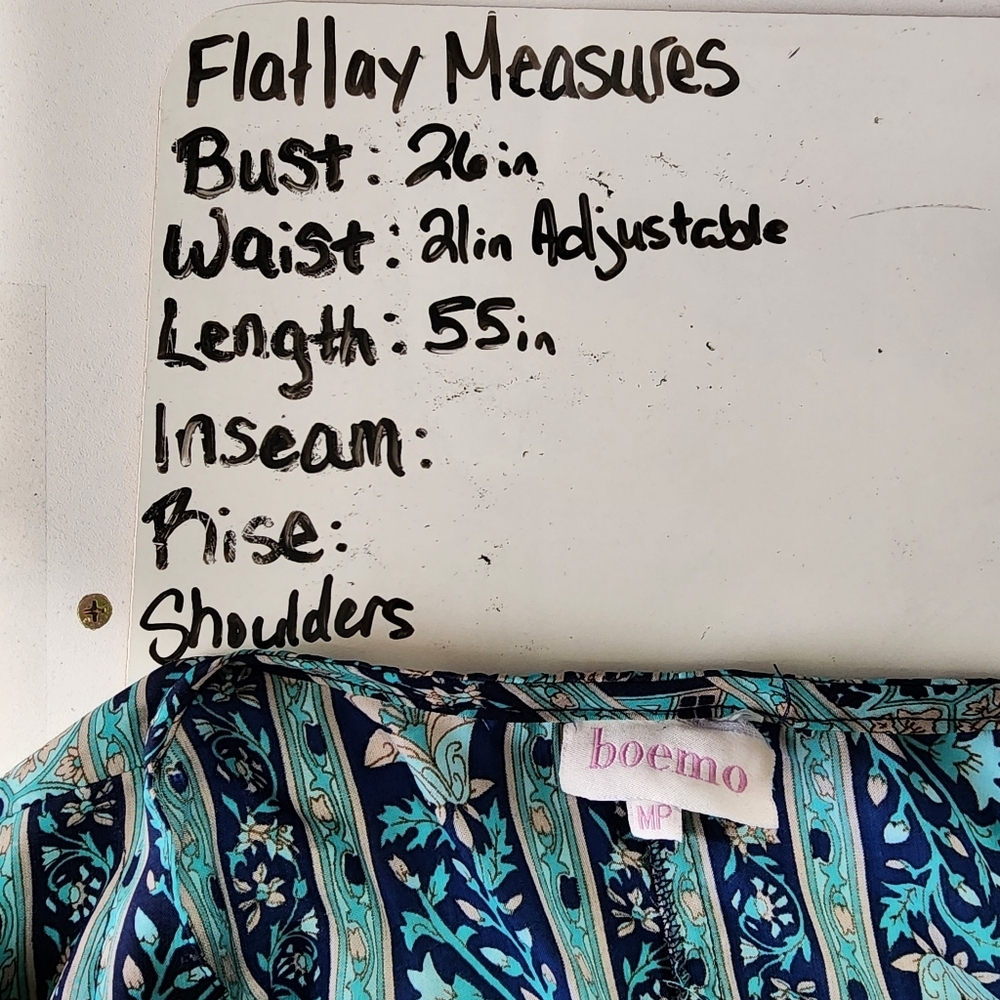 Flatlay Measures
Bust: 26in
Waist: 21in Adjustable
Length: 55in
Inseam:
Rise:
Shoulders
boemo
MP